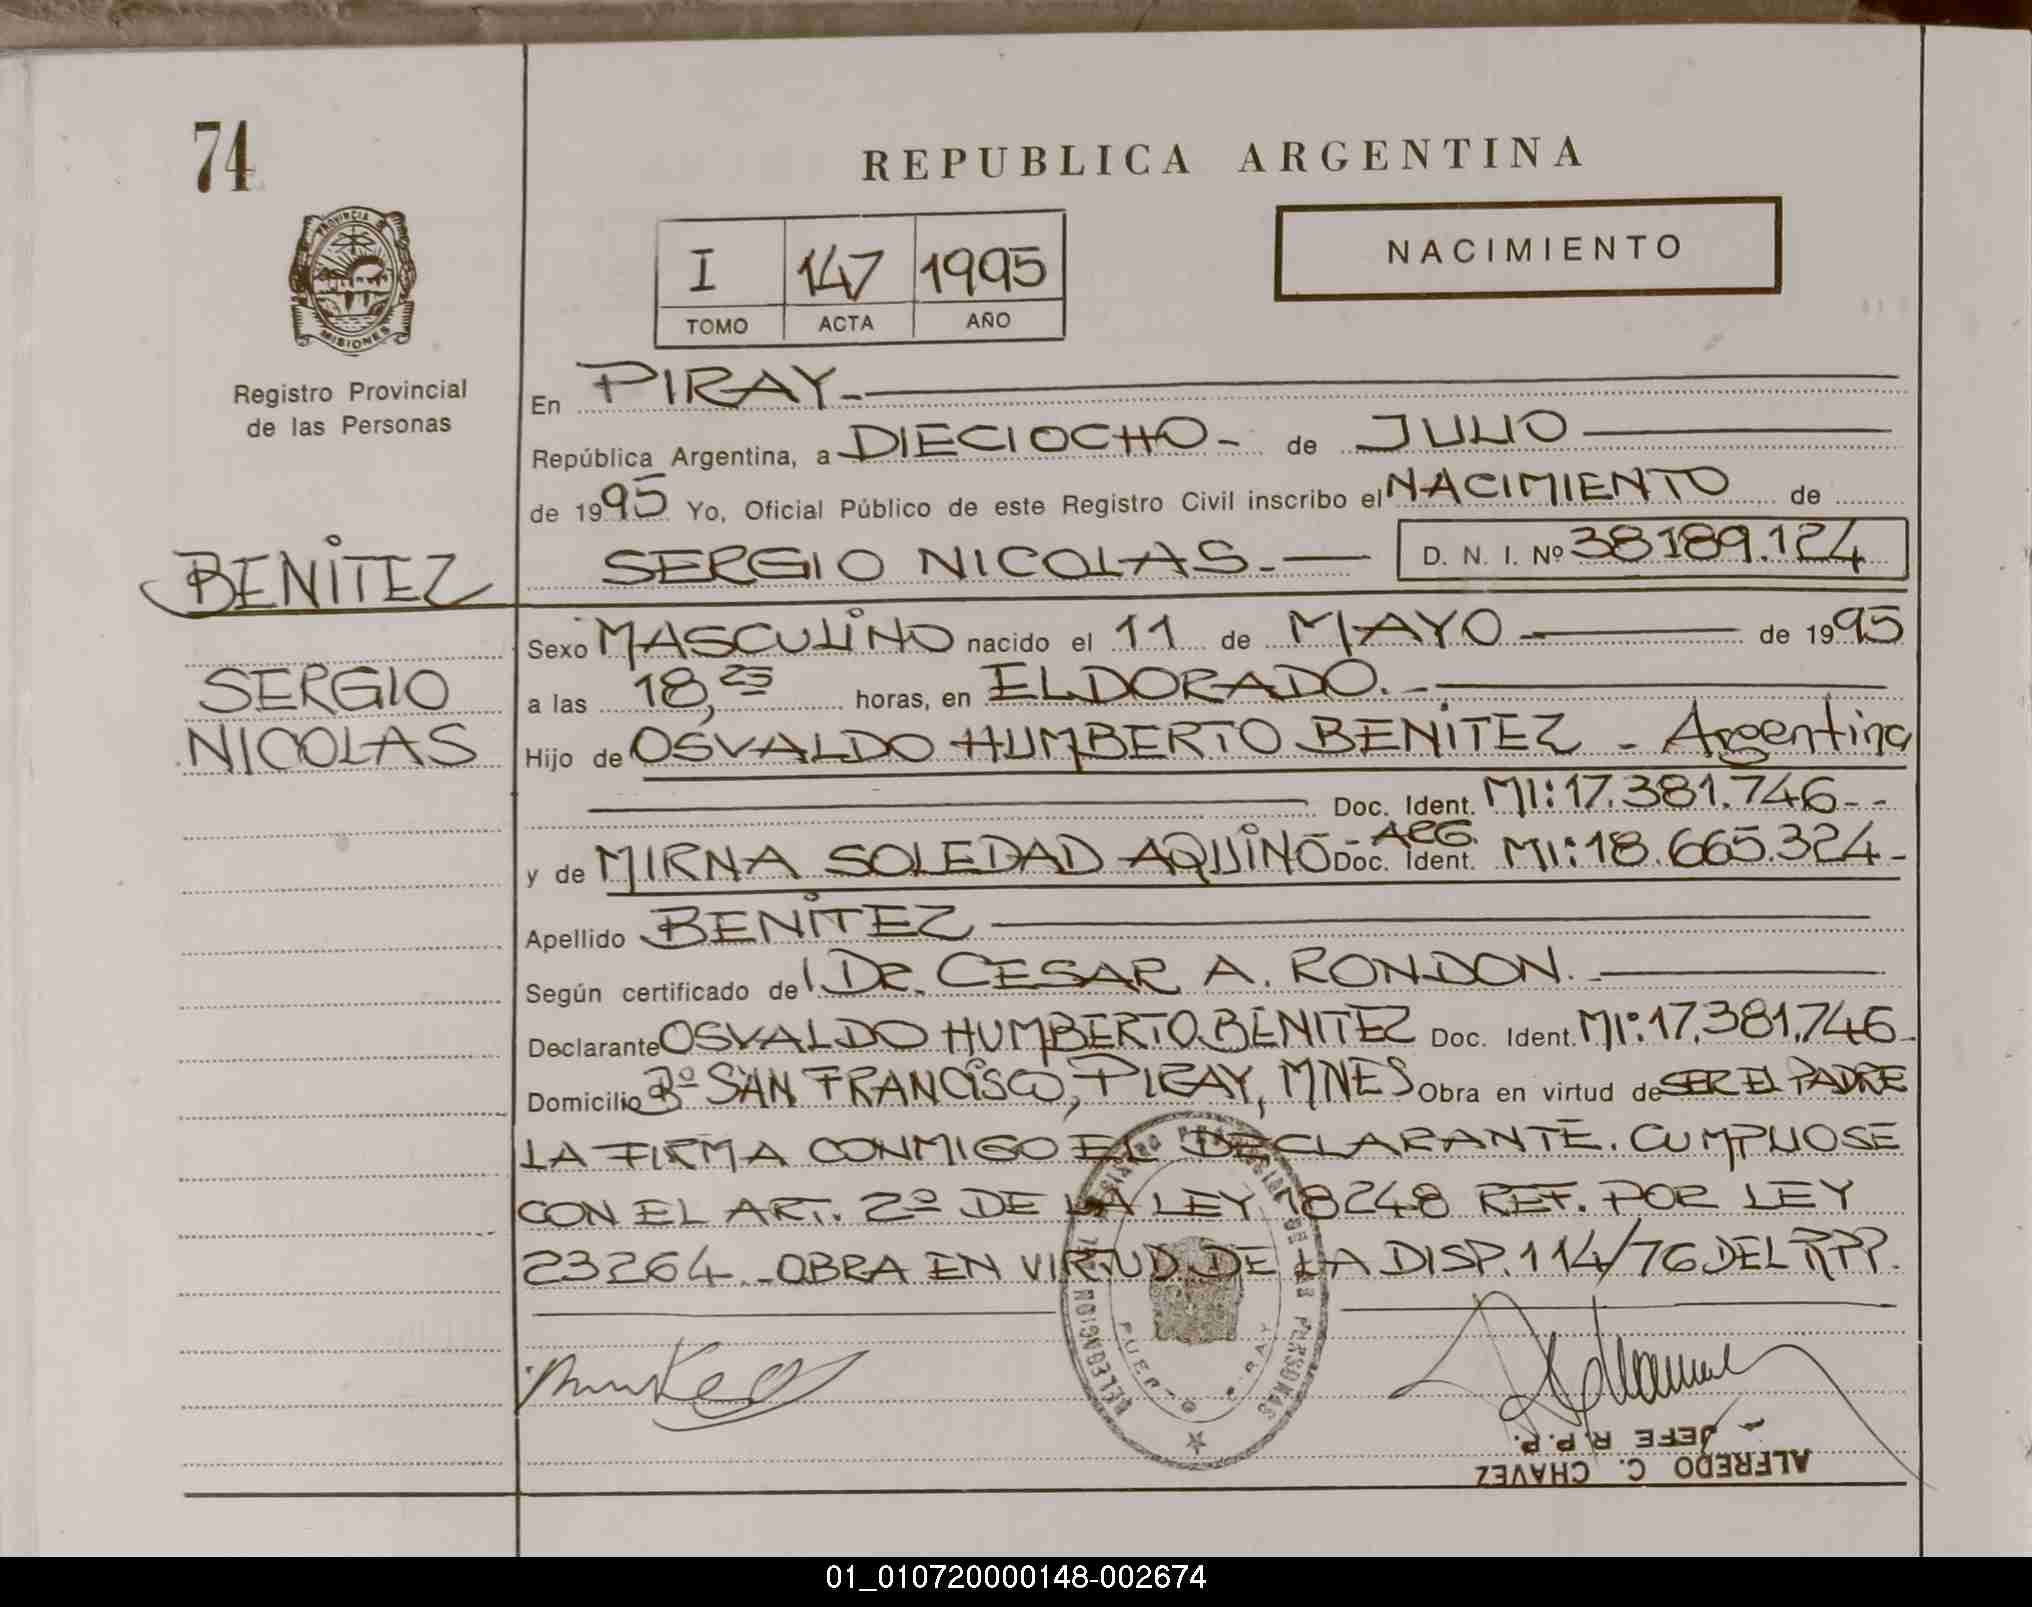 74
REPUBLICA ARGENTINA
PROVINCIA DE
MISIONES
Registro Provincial
de las Personas
NACIMIENTO
I 147 1995
TOMO ACTA AÑO
En PIRAY.-
República Argentina, a DIECIOCHO- de JULIO
de 1995 Yo, Oficial Público de este Registro Civil inscribo el NACIMIENTO de
BENITEZ
SERGIO NICOLAS.- D. N. I. Nº 38189.124
Sexo MASCULINO nacido el 11 de MAYO.- de 1995
SERGIO
a las 18,25 horas, en ELDORADO.-
NICOLAS
Hijo de OSVALDO HUMBERTO BENITEZ - Argentina
Doc. Ident. MI: 17.381.746--
y de MIRNA SOLEDAD AQUINO - ARG. Doc. Ident. MI: 18.665.324-
Apellido BENITEZ
Según certificado del DR. CESAR A. RONDON.
Declarante OSVALDO HUMBERTO BENITEZ Doc. Ident. MI: 17.381.746-
Domicilio Bº SAN FRANCISCO, PIRAY, MNES Obra en virtud de SER EL PADRE
LA FIRMA CONMIGO EL DECLARANTE. CUMPLIOSE
CON EL ART. 2º DE LA LEY 18248 REF. POR LEY
23264.-OBRA EN VIRTUD DE LA DISP. 114/76 DEL RPP.
REGISTRO PROVINCIAL DE LAS PERSONAS
DELEGACION
PUERTO PIRAY
ALFREDO C. CHAVEZ
JEFE R.P.P.
01_010720000148-002674